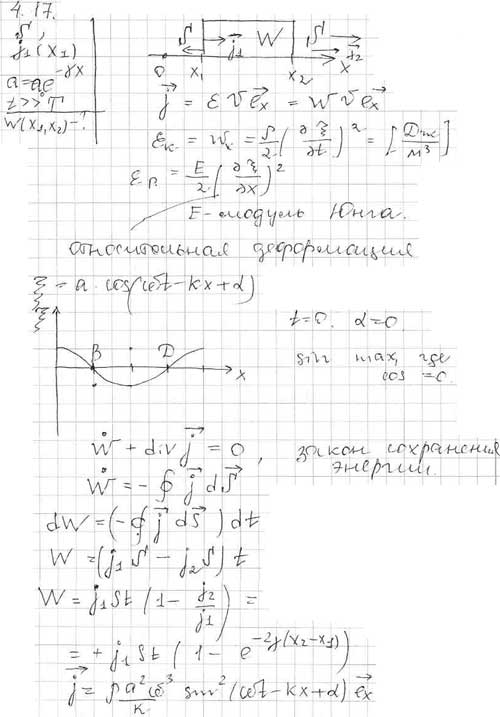 4.17.
S,
j₁(x₁)
a = ae^{-γx}
t >> T
W(x₁, x₂) - ?
S j₁ W S j₂
0 x₁ x₂ x
j⃗ = ε v e⃗ₓ = w v e⃗ₓ
εₖ = wₖ = ρ/2 (∂ξ/∂t)² = [Дж/м³]
εₙ = E/2 (∂ξ/∂x)²
E - модуль Юнга.
относительная деформация
ξ = a · cos(ωt - kx + α)
ξ
t = 0. α = 0.
B D x
sin max, где
cos = 0.
ẇ + div j⃗ = 0, закон сохранения
энергии.
Ẇ = - ∮ j⃗ dS⃗
dW = (- ∮ j⃗ dS⃗) dt
W = (j₁S - j₂S) t
W = j₁St (1 - j₂/j₁) =
= + j₁St (1 - e^{-2γ(x₂-x₁)})
j⃗ = ρa²ω³/k sin²(ωt - kx + α) e⃗ₓ